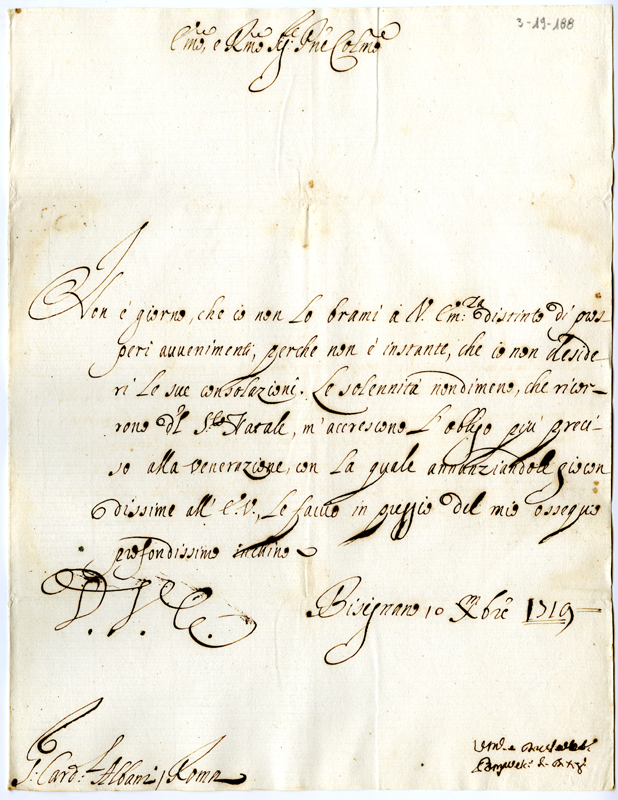 3-19-188
Em̃o, e Rm̃o Sig.r Pñe Colm̃o
Non è giorno, che io non Lo brami à V. Em.za distinto di pros-
peri avvenimenti, perche non è instante, che io non deside-
ri Le sue consolazioni. Le solennità nondimeno, che ricor-
rono del S.to Natale, m'accrescono L'obligo più preci-
so alla venerazione, con La quale annunziandole giocon
dissime all' E.V., Le faccio in pressio del mio ossequio
profondissimo inchino
D. V. E.
Bisignano 10 Xbrẽ 1719
S. Card.l Albani, Roma